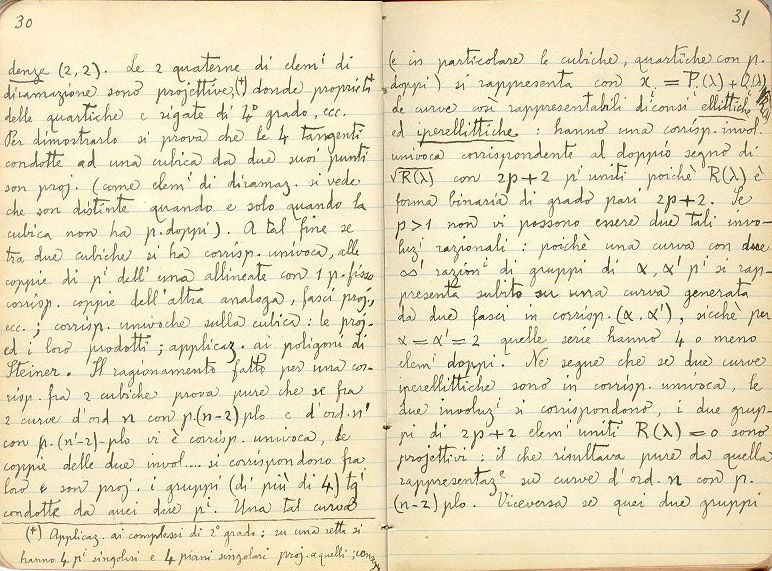 30
denze (2,2). Le 2 quaterne di elemⁱ di
diramazione sono projettive,(+) donde proprietà
delle quartiche e rigate di 4º grado, ecc.
Per dimostrarlo si prova che le 4 tangenti
condotte ad una cubica da due suoi punti
son proj. (come elemⁱ di diramaz. si vede
che son distinte quando e solo quando la
cubica non ha p. doppi). A tal fine se
tra due cubiche si ha corrisp. univoca, alle
coppie di pⁱ dell'una allineate con 1 p. fisso
corrisp. coppie dell'altra analoga, fasci proj.,
ecc.; corrisp. univoche sulla cubica: le proj.
ed i loro prodotti; applicaz. ai poligoni di
Steiner. Il ragionamento fatto per una cor-
risp. fra 2 cubiche prova pure che se fra
2 curve d'ord n con p.(n-2)plo e d'ord. n'
con p. (n'-2)-plo vi è corrisp. univoca, le
coppie delle due invol.... si corrispondono fra
loro e son proj. i gruppi (di più di 4) tgⁱ
condotte da quei due pⁱ. Una tal curva
(+) Applicaz. ai complessi di 2º grado: su una retta si
hanno 4 pⁱ singolari e 4 piani singolari proj. a quelli;
31
(e in particolare le cubiche, quartiche con p.
doppi) si rappresenta con x = P(λ) + Q(λ) √R(λ)
Le curve così rappresentabili diconsi ellittiche
ed iperellittiche: hanno una corrisp. invol.
univoca corrispondente al doppio segno di
√R(λ) con 2p+2 pⁱ uniti poichè R(λ) è
forma binaria di grado pari 2p+2. Se
p>1 non vi possono essere due tali invo-
luzⁱ razionali: poichè una curva con due
∞¹ razionⁱ di gruppi di α, α' pⁱ si rap-
presenta subito su una curva generata
da due fasci in corrisp. (α.α'), sicchè per
α = α' = 2 quelle serie hanno 4 o meno
elemⁱ doppi. Ne segue che se due curve
iperellittiche sono in corrisp. univoca, le
due involuzⁱ si corrispondono, i due grup-
pi di 2p+2 elemⁱ uniti R(λ)=0 sono
projettivi: il che risultava pure da quella
rappresentazᵉ su curve d'ord. n con p.
(n-2)plo. Viceversa se quei due gruppi